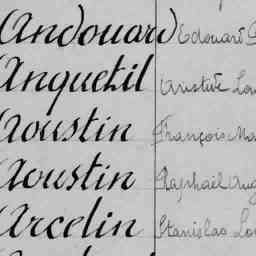 Andouard Edouard
Anquetil Aristide Lou
Aoustin François Ma
Aoustin Raphaël Aug
Arcelin Stanislas Lou